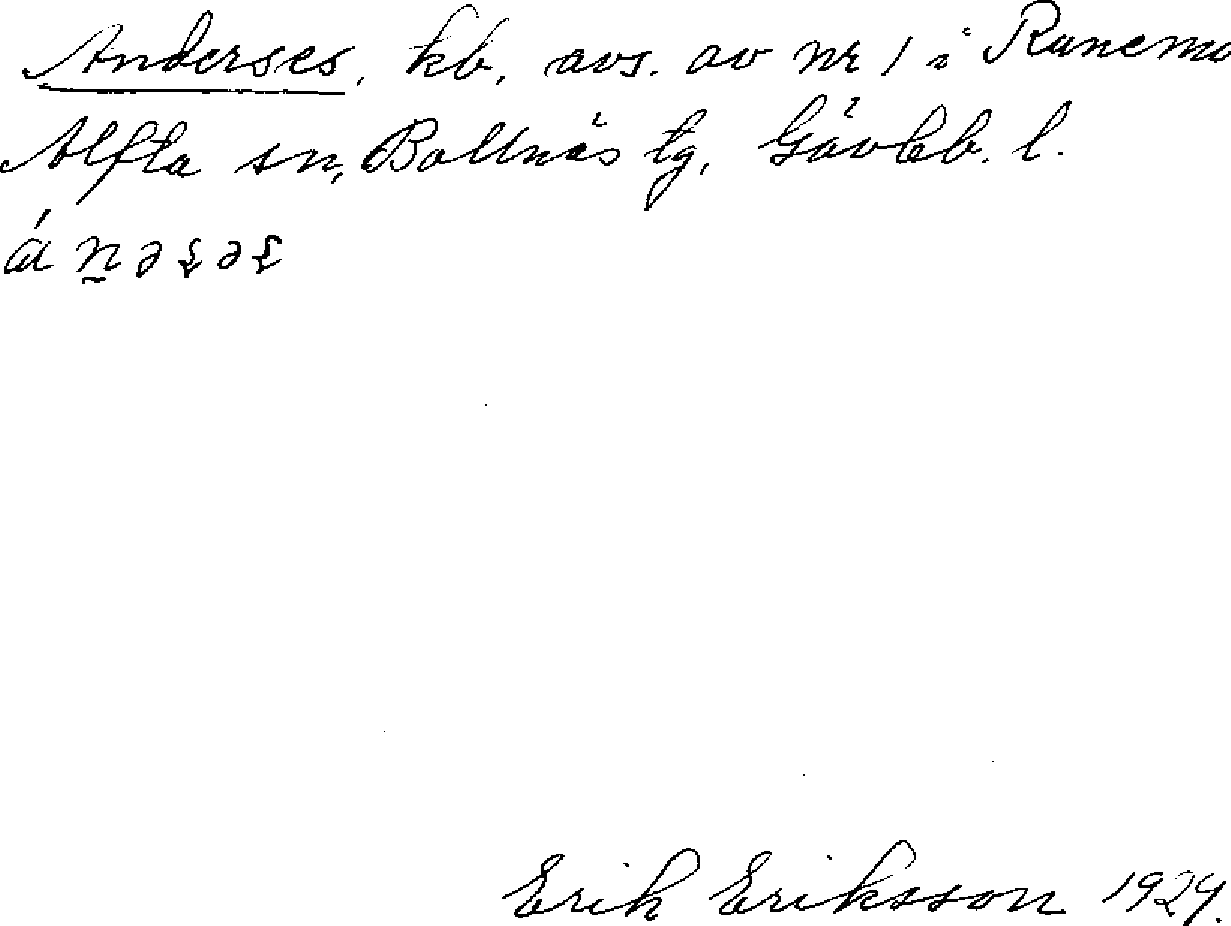 Anderses, kb, avs. av nr 1 i Runemo
Alfta sn, Bollnäs tg, Gävleb. l.
Erik Eriksson 1924.